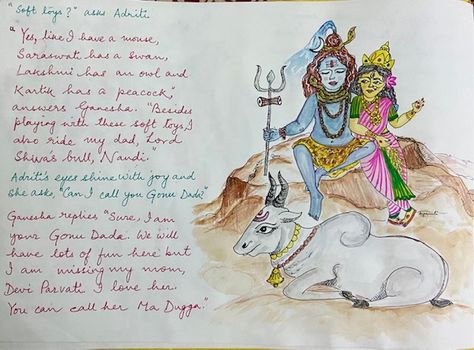 "Soft toys?" asks Adriti
"Yes, like I have a mouse,
Saraswati has a swan,
Lakshmi has an owl and
Kartik has a peacock,"
answers Ganesha. "Besides
playing with these soft toys, I
also ride my dad, Lord
Shiva's bull, Nandi.
Adriti's eyes shine with joy and
she asks, "Can I call you Gonu Dada?"
Ganesha replies "Sure, I am
your Gonu Dada. We will
have lots of fun here but
I am missing my mom,
Devi Parvati. I love her.
You can call her Ma Dugga."